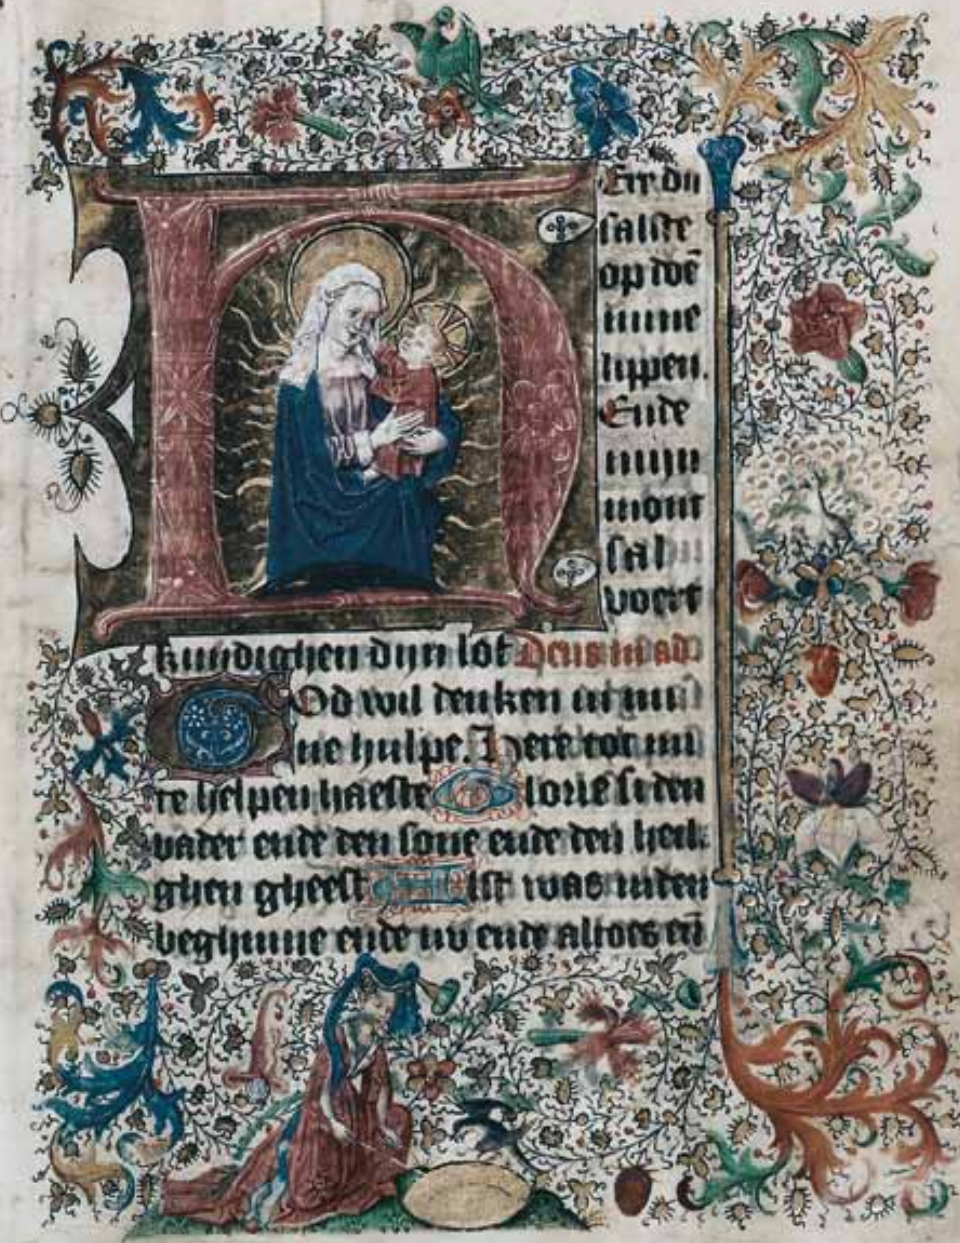 Ere du
salste
op doē
mine
lippen.
Ende
mijn
mont
sal
voert
kundighen dijn lof Deus in ad
God wil denken in mi
ne hulpe. Here tot mi
te helpen haeste Glorie si den
vader ende den sone ende den heili
ghen gheest Alst was inden
beghinne ende nv ende altoes eñ